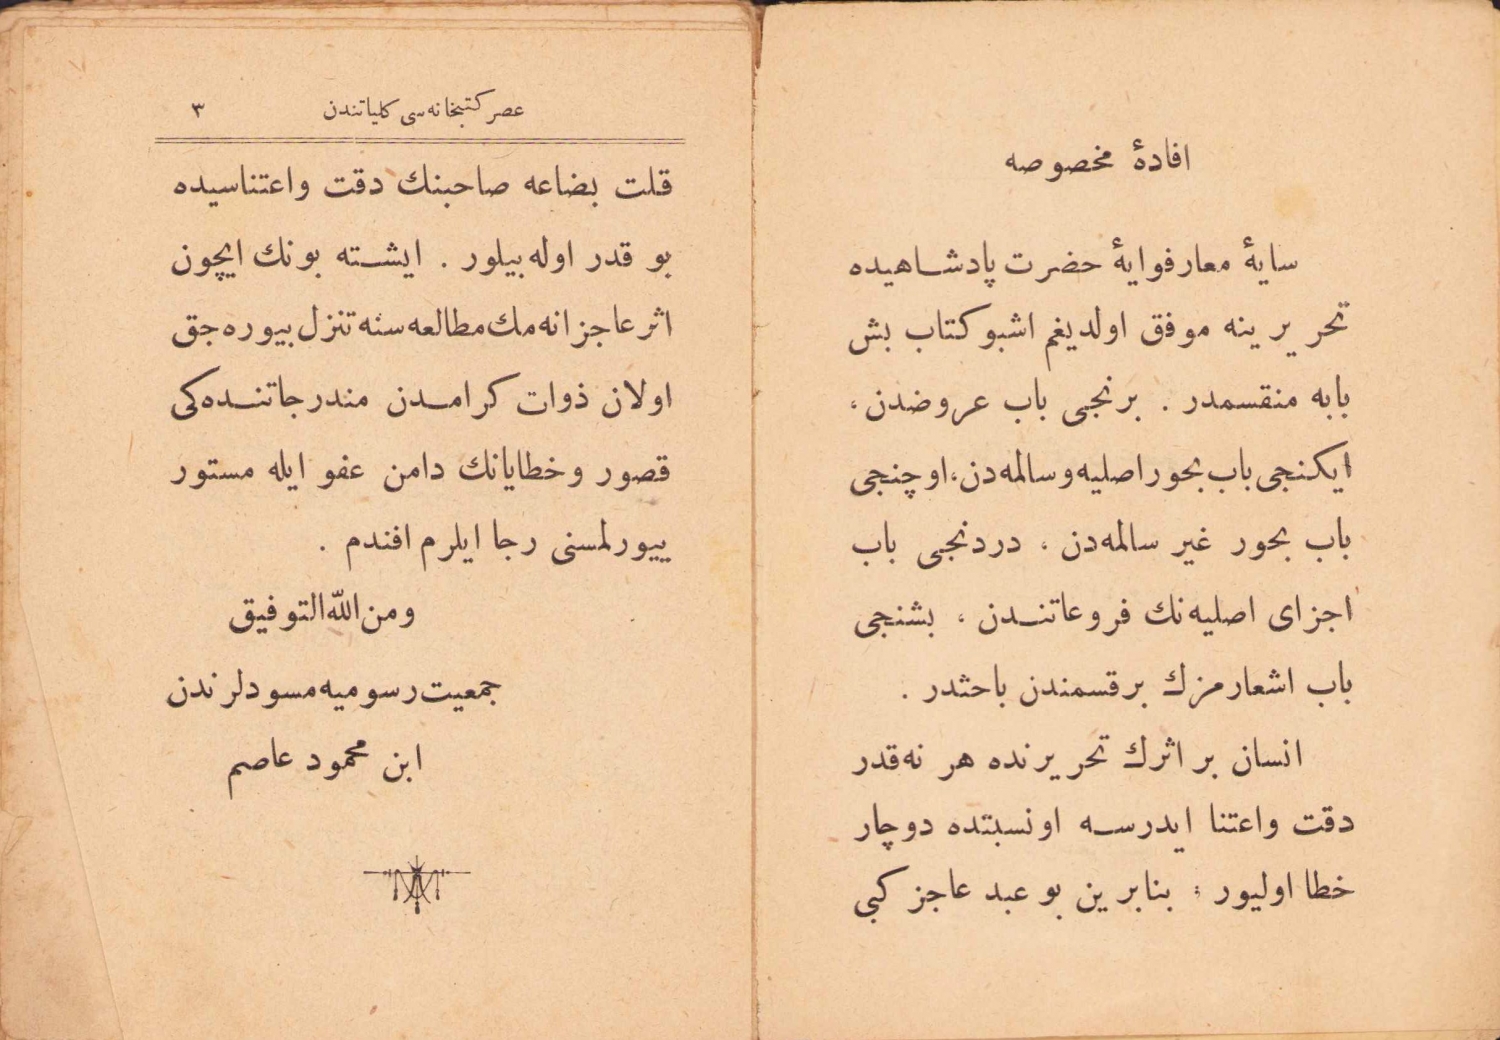 افادهٔ مخصوصه
سایهٔ معارفوایهٔ حضرت پادشاهیده
تحریرینه موفق اولدیغم اشبو کتاب بش
بابه منقسمدر . برنجی باب عروضدن ،
ایکنجی باب بحور اصلیه و سالمه‌دن ، اوچنجی
باب بحور غیر سالمه‌دن ، دردنجی باب
اجزای اصلیه‌نك فروعاتندن ، بشنجی
باب اشعارمزك برقسمندن باحثدر .
انسان بر اثرك تحریرنده هر نه‌قدر
دقت واعتنا ایدرسه اونسبتده دوچار
خطا اولیور ؛ بنابرین بو عبد عاجز کبی
عصر کتبخانه‌سی کلیاتندن ٣
قلت بضاعه صاحبنك دقت واعتناسیده
بو قدر اوله‌بیلور . ایشته بونك ایچون
اثر عاجزانه‌مك مطالعه‌سنه تنزل بیوره‌جق
اولان ذوات کرامدن مندرجاتنده‌کی
قصور وخطایانك دامن عفو ایله مستور
بیورلمسنی رجا ایلرم افندم .
ومن الله التوفیق
جمعیت رسومیه مسودلرندن
ابن محمود عاصم